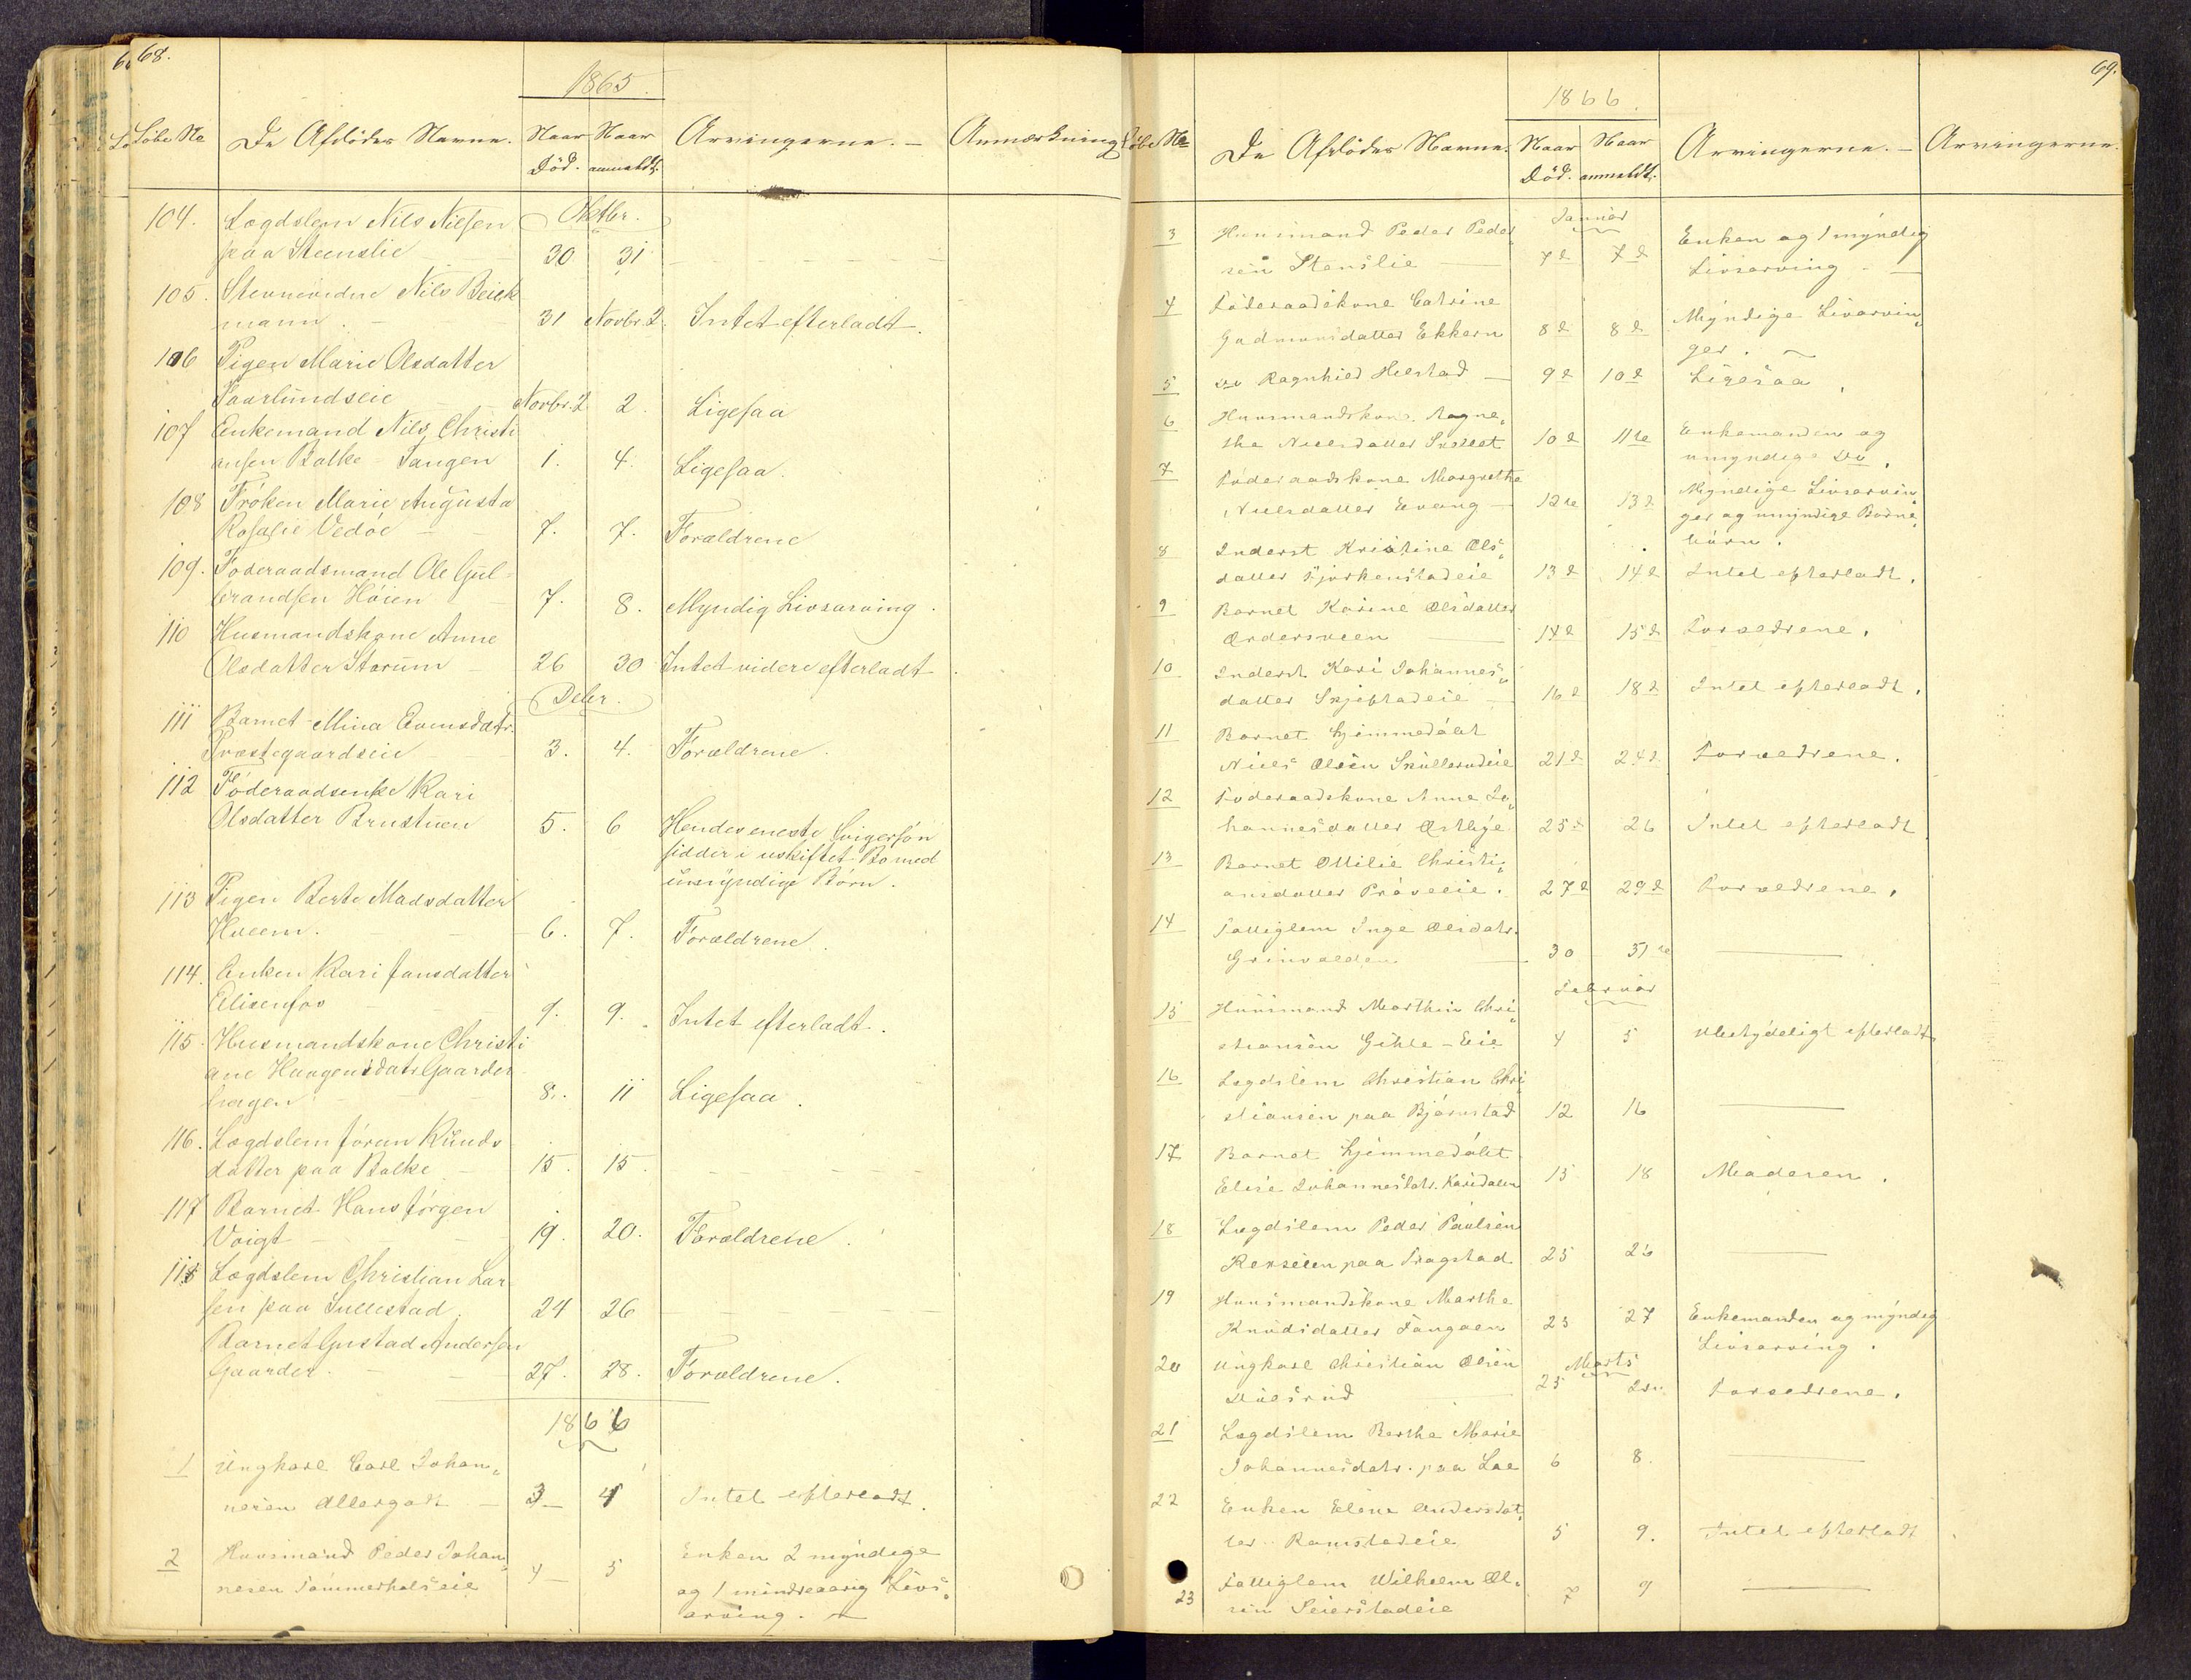 68.
1865.
Løbe No De Afdødes Navne. Naar Død. Naar anmeldt. Arvingerne. – Anmærkning
Oktbr.
104. Lægdslem Nils Nilsen
paa Steenslie 30 31
105. Stevnevidne Nils Beick
mann. 31 Novbr. 2. Intet efterladt.
106 Pigen Marie Olsdatter
Paarlundseie Novbr. 2 2. Ligesaa
107 Enkemand Nils Christi
ansen Balke-Tangen 1. 4. Ligesaa.
108 Frøken Marie Augusta
Rosalie Vedøe 7. 7. Forældrene
109. Føderaadsmand Ole Gul-
brandsen Høien 7. 8. Myndig Livsarving.
110 Husmandskone Anne
Olsdatter Starum 26 30 Intet videre efterladt.
Debr.
111 Barnet Mina Evensdatr.
Præstegaardseie 3. 4. Forældrene.
112 Føderaadsenke Kari
Olsdatter Brustuen 5. 6 Hendes eneste Svigersøn
sidder i uskiftet Bo med
umyndige Børn.
113 Pigen Berte Madsdatter
Hveem. 6. 7. Forældrene.
114. Enken Kari Jansdatter
9. 9. Intet efterladt.
115. Husmandskone Christi
ane Haagensdatr. Gaarder
hagen 8. 11 Ligesaa.
116. Lægdslem Jøran Knuds
datter paa Balke 15. 15.
117 Barnet Hans Jørgen
Voigt 19. 20. Forældrene.
118 Lægdslem Christian Lar
sen paa Sullestad. 24 26
Barnet Gustad Andersen
Gaarder. 27. 28. Forældrene.
1866
1 Ungkarl Carl Johan„
nesen Allergodt 3 4 Intet efterladt.
2 Huusmand Peder Johan„
nesen Sommerhalseie 4 5 Enken 2 myndige
og 1 mindreaarig Livs„
arving.
69.
1866.
Løbe No De Afdødes Navne. Naar Død. Naar anmeldt. Arvingerne. – Arvingerne.
Januar
3 Huusmand Peder Peder„
sen Stenslie 7de 7de Enken og 1 myndig
Livsarving.
4 Føderaadskone Catrine
Gudmunsdatter Ekkern 8de 8de Myndige Livsarvin„
ger.
5 do Ragnhild Helstad 9de 10de Ligesaa.
6 Huusmandskone Agne„
the Nielsdatter 10de 11te Enkemanden og
umyndige do.
7 Føderaadskone Margrethe
Nielsdatter Evang 12te 13de Myndige Livsarvin„
ger og umyndige Børne„
børn.
8 Inderst Kristine Ols„
datter 13de 14de Intet efterladt.
9 Barnet Karine Olsdatter
14de 15de Forældrene.
10 Inderst Kari Johannes„
datter 16de 18de Intet efterladt.
11 Barnet hjemmedøbt
Niels Olsen Skullerudeie 21de 24de Forældrene.
12 Føderaadskone Anne Jo„
hannesdatter 25de 26 Intet efterladt
13 Barnet Ottilie Christi„
ansdatter Prøveeie. 27de 29de Forældrene.
14 Fattiglem Inge Olsdatr.
30 31te
Februar
15 Huusmand Marthin Chri„
stiansen Gihle-Eie 4 5 Ubetydeligt efterladt
16 Lægdslem Christian Chri
stiansen paa Bjørnstad 12 16
17 Barnet hjemmedøbt
Elise Johannesdatr. Karidalen 15 18 Moderen.
18 Lægdslem Peder Paulsen
paa 25 26
19 Huusmandskone Marthe
Knudsdatter Tangen 25 27 Enkemanden og myndig
Livsarving.
Marts
20 Ungkarl Christian Olsen
25 Forældrene.
21 Lægdslem Berthe Marie
Johannesdatr. paa Loe 6 8.
22 Enken Elene Andersdat„
ter Ramstadeie 5 9. Intet efterladt
23 Fattiglem Wilhelm Ol„
sen Seierstadeie 7 9